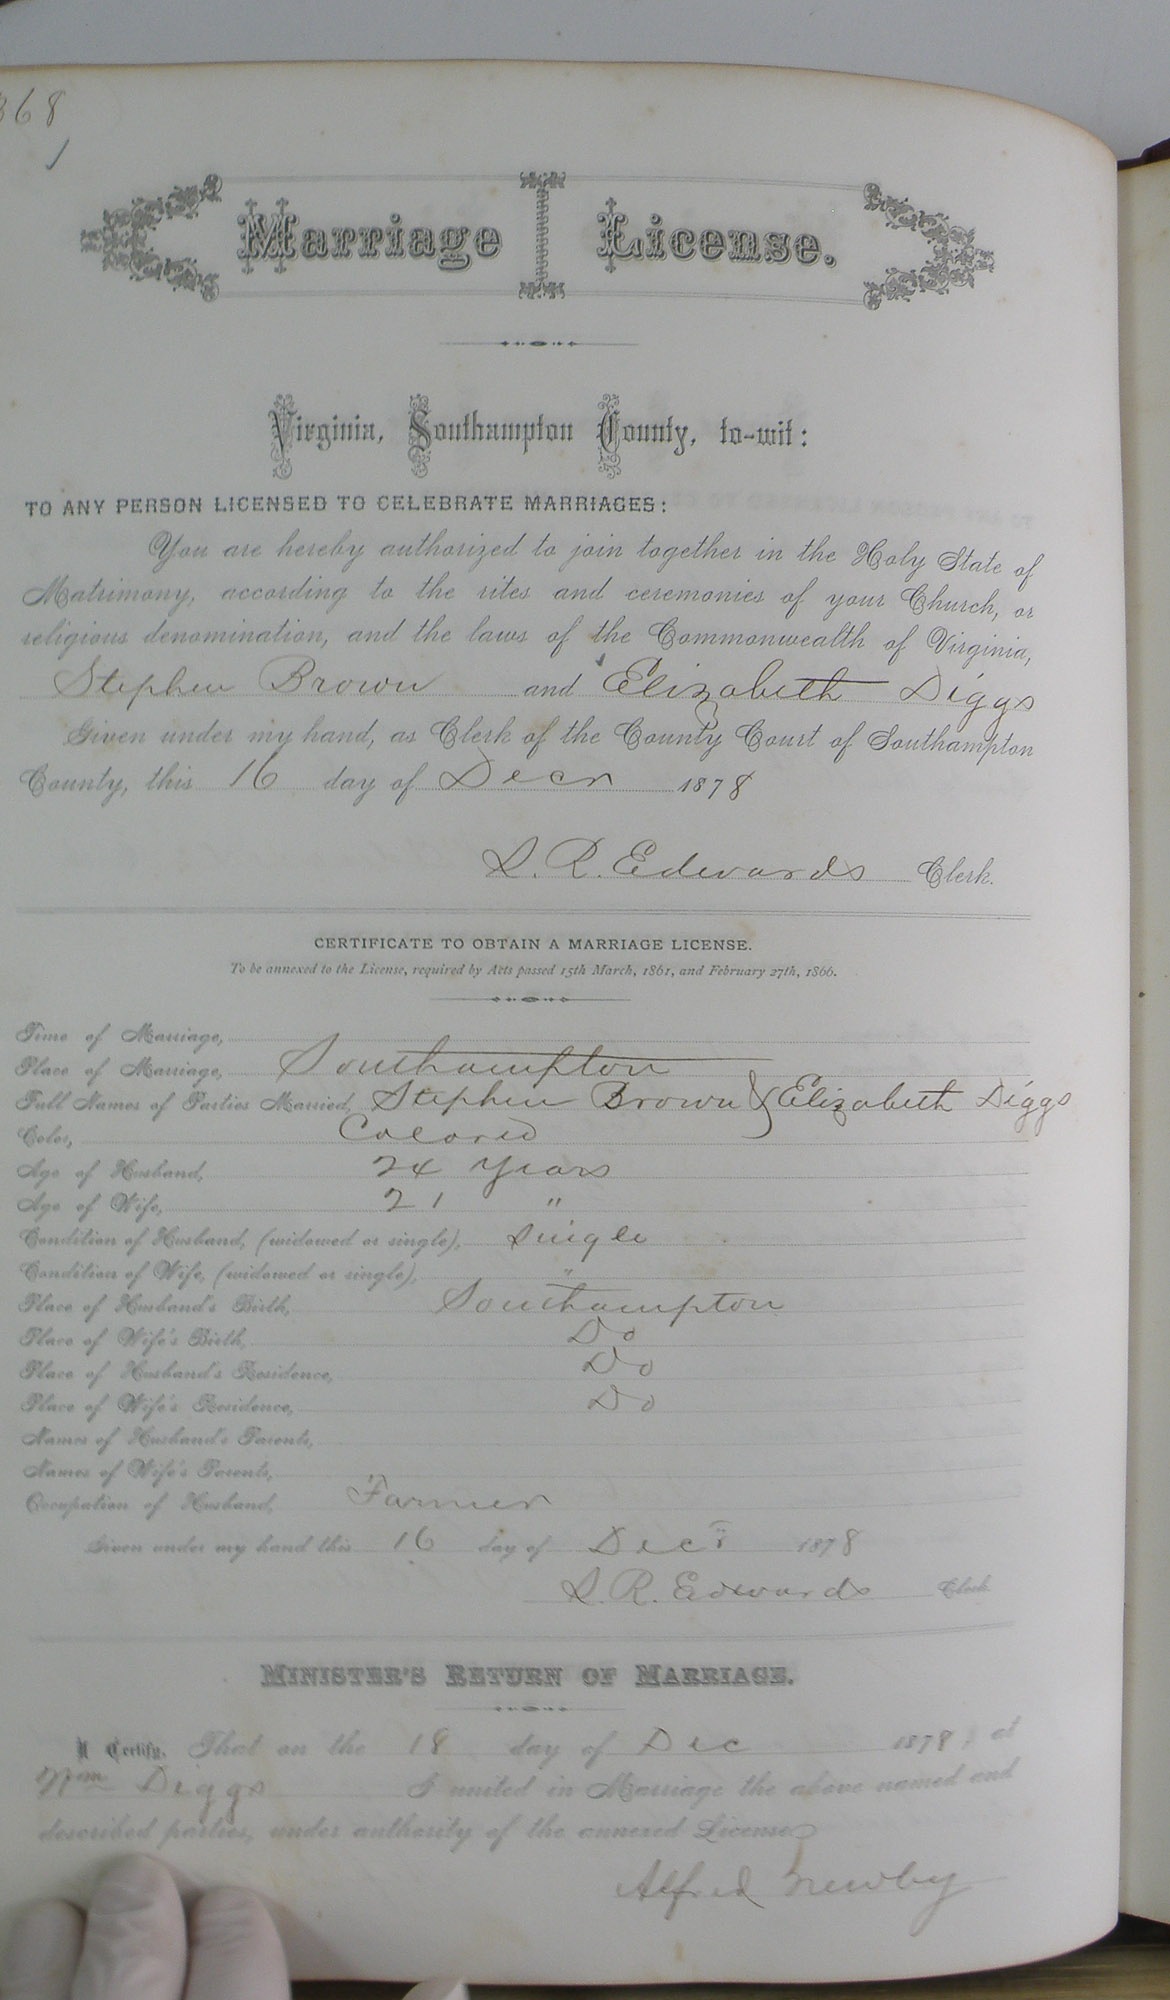 368
Marriage License.
Virginia, Southampton County, to-wit:
TO ANY PERSON LICENSED TO CELEBRATE MARRIAGES:
You are hereby authorized to join together in the Holy State of
Matrimony, according to the rites and ceremonies of your Church, or
religious denomination, and the laws of the Commonwealth of Virginia,
Stephen Brown and Elizabeth Diggs
Given under my hand, as Clerk of the County Court of Southampton
County, this 16 day of Decr 1878
L. R. Edwards Clerk.
CERTIFICATE TO OBTAIN A MARRIAGE LICENSE.
To be annexed to the License, required by Acts passed 15th March, 1861, and February 27th, 1866.
Time of Marriage,
Place of Marriage, Southampton
Full Names of Parties Married, Stephen Brown & Elizabeth Diggs
Color, Colored
Age of Husband, 24 Years
Age of Wife, 21 "
Condition of Husband, (widowed or single), Single
Condition of Wife, (widowed or single), "
Place of Husband's Birth, Southampton
Place of Wife's Birth, Do
Place of Husband's Residence, Do
Place of Wife's Residence, Do
Names of Husband's Parents,
Names of Wife's Parents,
Occupation of Husband, Farmer
Given under my hand this 16 day of Decr 1878
L. R. Edwards Clerk.
MINISTER'S RETURN OF MARRIAGE.
I Certify, That on the 18 day of Dec 1878, at
Diggs I united in Marriage the above named and
described parties, under authority of the annexed License
Alfred Newby